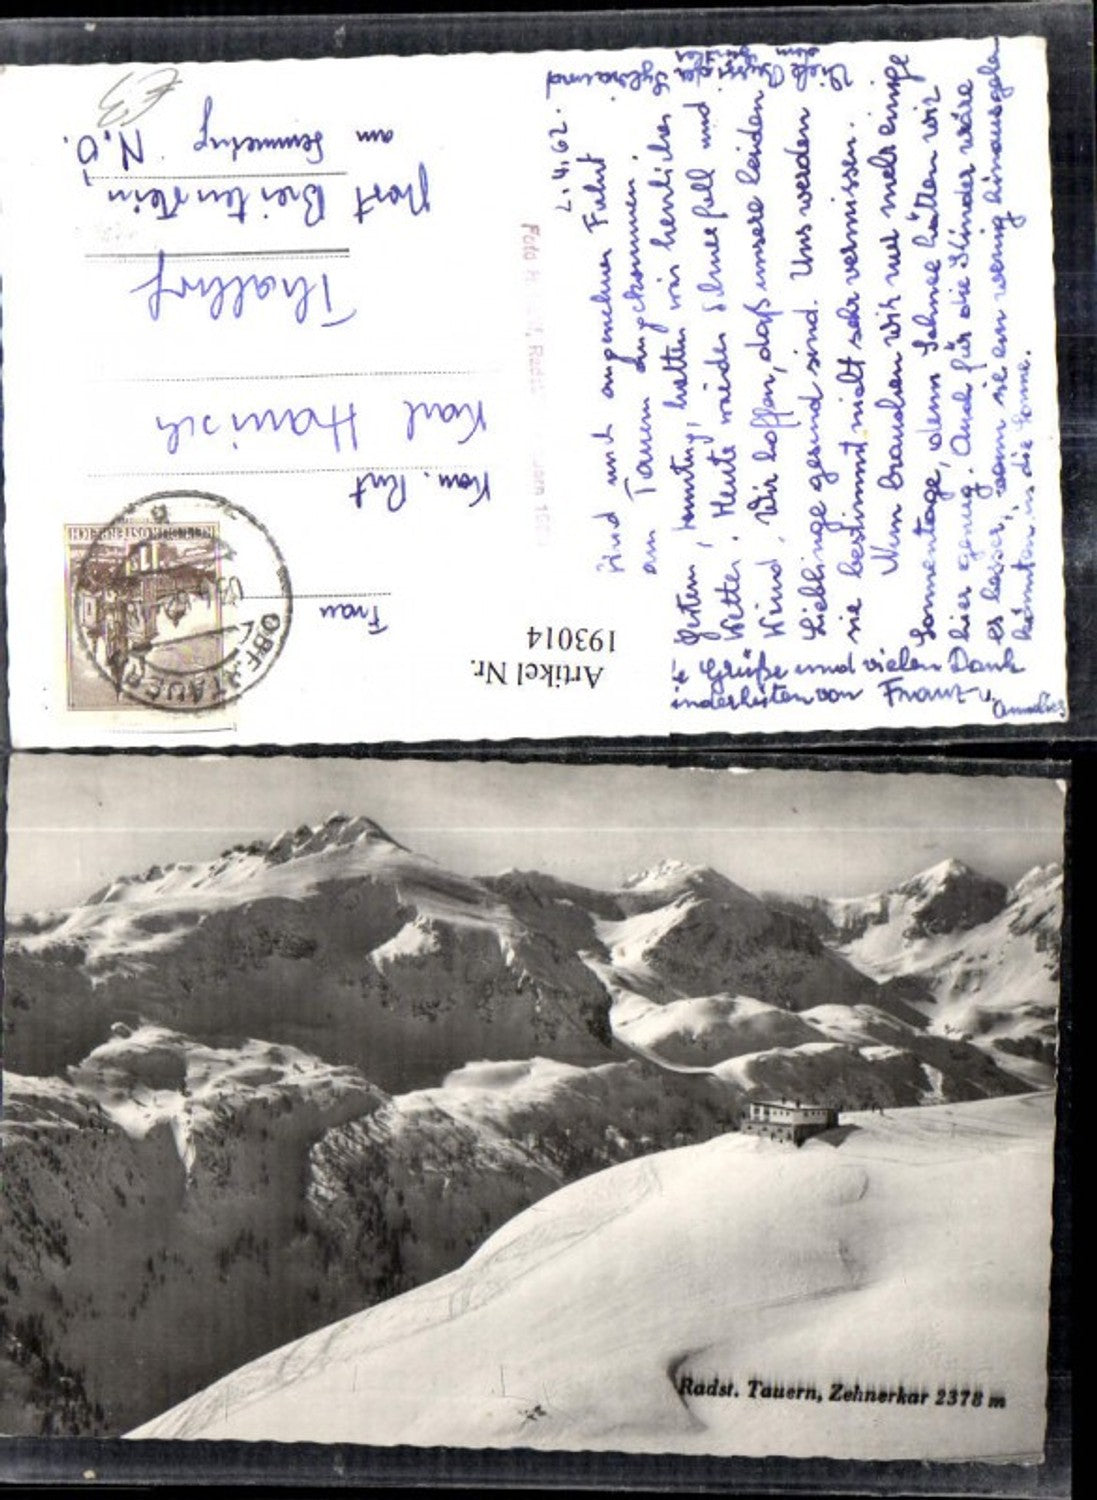 2.4.62.
Sind nach angenehmer Fahrt
am Tauern angekommen.
Gestern, Sonntag, hatten wir herrliches
Wetter. Heute wieder Schneefall und
Wind. Wir hoffen, daß unsere beiden
Lieblinge gesund sind. Uns werden
sie bestimmt nicht sehr vermissen.
Nun brauchen wir nur mehr einige
Sonnentage, denn Schnee hätten wir
hier genug. Auch für die Kinder wäre
es besser, wenn sie ein wenig hinausgehen
könnten in die Sonne.
Grüße und vielen Dank
von Franz
Annelies
Frau
Kom. Rat
Karl Hanisch
Thalhof
Post Breitenstein,
am Semmering N.Ö.
€3
REPUBLIK ÖSTERREICH
OBERTAUERN
Artikel Nr.
193014
Radst. Tauern, Zehnerkar 2378 m